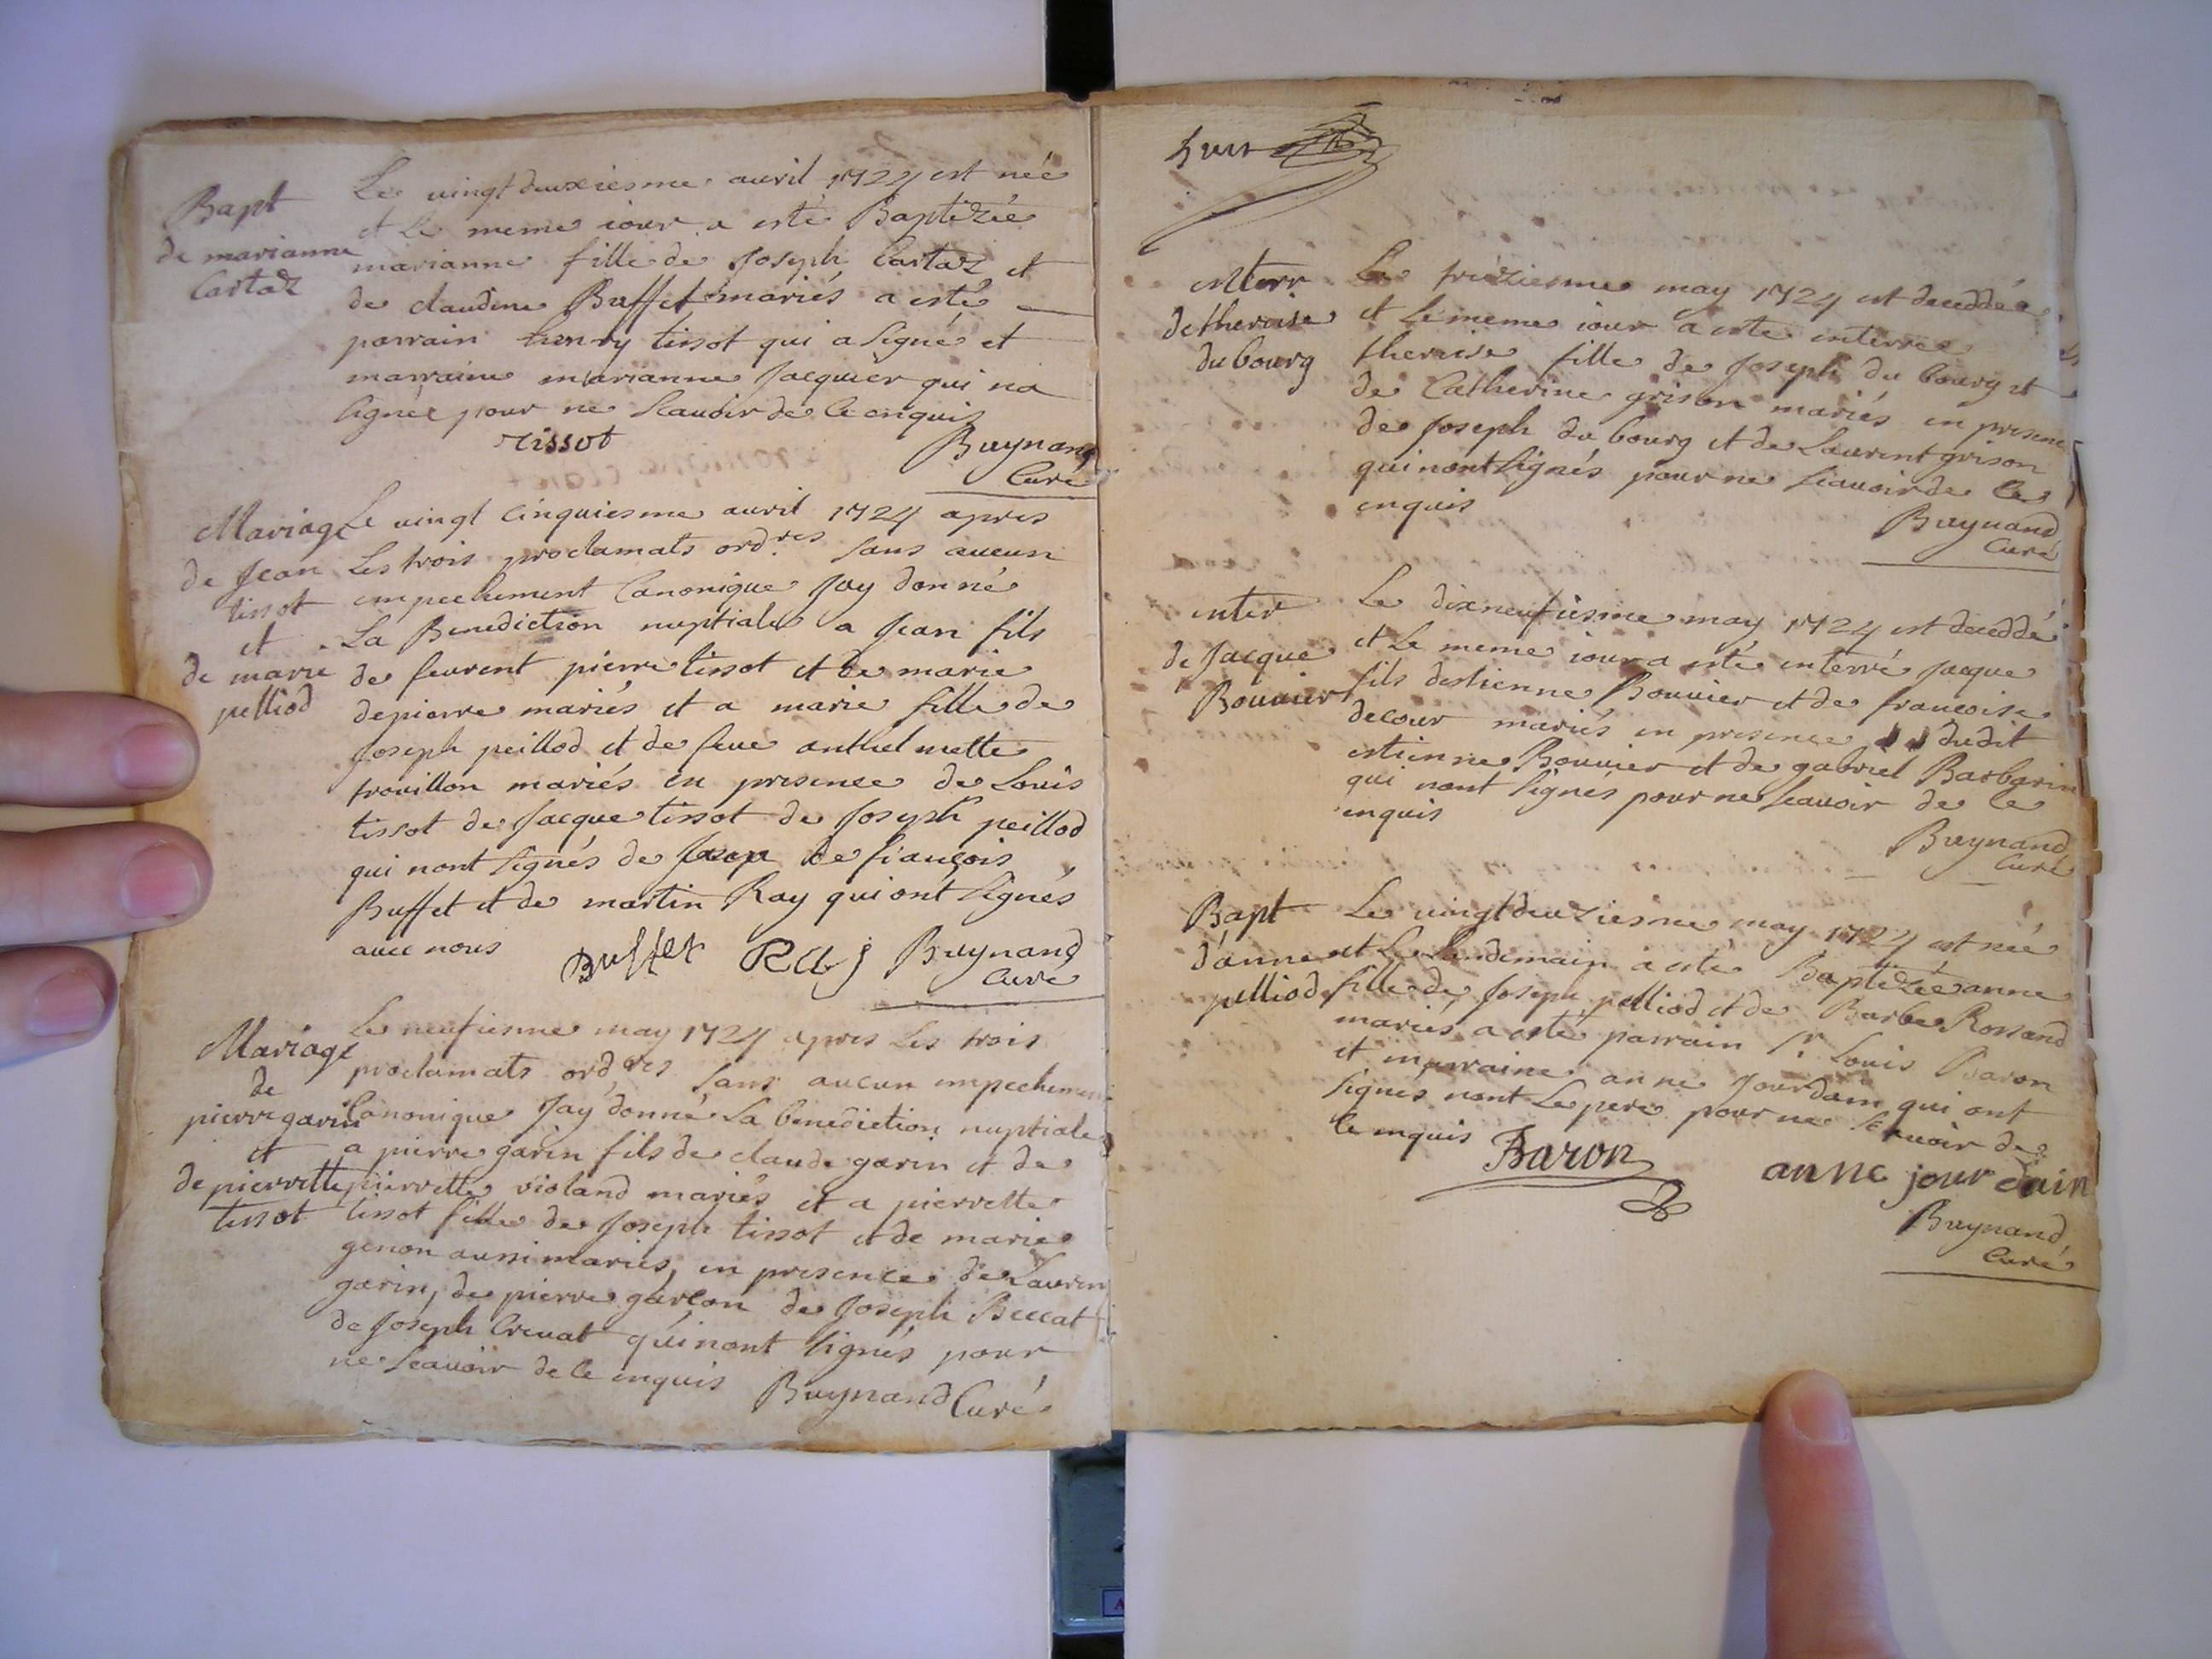 Bapt
de marianne
Cartaz
Le vingt deuxiesme avril 1724 est née
et le meme iour a esté Baptizée
marianne fille de Joseph Cartaz et
de claudine Buffet mariés a esté
parrain henry tissot qui a signé et
marraine marianne Jacquier qui na
signée pour ne scauoir de ce enquis
tissot
Buynand
Curé
Mariage
de Jean
tissot
et
de marie
pelliod
Le vingt cinquiesme avril 1724 apres
Les trois proclamats ord.res sans aucun
empechement Canonique Jay donné
La Benediction nuptiale a Jean fils
de feurent pierre tissot et de marie
depierre mariés et a marie fille de
Joseph peillod et de feue anthelmette
trouillon mariés en presence de Louis
tissot de Jacque tissot de Joseph peillod
qui nont signés de de françois
Buffet et de martin Ray qui ont signés
auec nous
Buffet Ray Buynand
Curé
Mariage
de
pierre garin
et
de pierrette
tissot
Le neufiesme may 1724 apres Les trois
proclamats ord.res sans aucun empechement
Canonique Jay donné La benediction nuptiale
a pierre garin fils de claude garin et de
pierrette violand mariés et a pierrette
tissot fille de Joseph tissot et de marie
genon aussi mariés, en presence de Lauren
garin, de pierre garcon de Joseph Beccat
de Joseph Creuat qui nont signés pour
ne scauoir de ce enquis Buynand Curé
huit
enterr
de theraise
du bourg
Le treiziesme may 1724 est deceddée
et le meme iour a esté enterrée
theraise fille de Joseph du bourg et
de Catherine grison mariés en presence
de Joseph du bourg et de Laurent grison
qui nont signés pour ne scauoir de ce
enquis
Buynand
Curé
enter
de Jacque
Bouuier
Le dixneufiesme may 1724 est deceddé
et Le meme iour a esté enterré Jacque
fils destienne Bouuier et de francoise
decour mariés en presence dudit
estienne Bouuier et de gabriel Barbarin
qui nont signés pour ne scauoir de ce
enquis
Buynand
Curé
Bapt
d'anne
pelliod
Le vingtdeuziesme may 1724 est née
et Le Lendemain a esté Baptizée anne
fille de Joseph pelliod et de Barbe Rossand
mariés a esté parrain Sr. Louis Baron
et marraine anne Jourdain qui ont
signés nont Le pere pour ne scauoir de
ce enquis
Baron
anne jourdain
Buynand
Curé